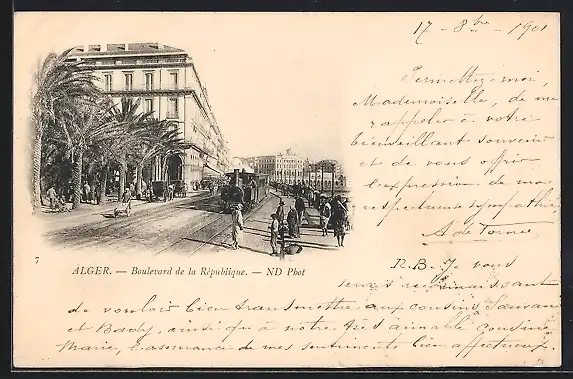 17 - 8bre - 1901
Permettez-moi,
Mademoiselle, de me
rappeler à votre
bienveillant souvenir
et de vous offrir
l'expression de ma
respectueuse sympathie.
A de
7
ALGER. — Boulevard de la République. — ND Phot
N.B. Je vous
serais reconnaissant
de vouloir bien transmettre aux cousins
et Bady, ainsi qu'à notre très aimable cousine
Marie, l'assurance de mes sentiments bien affectueux.